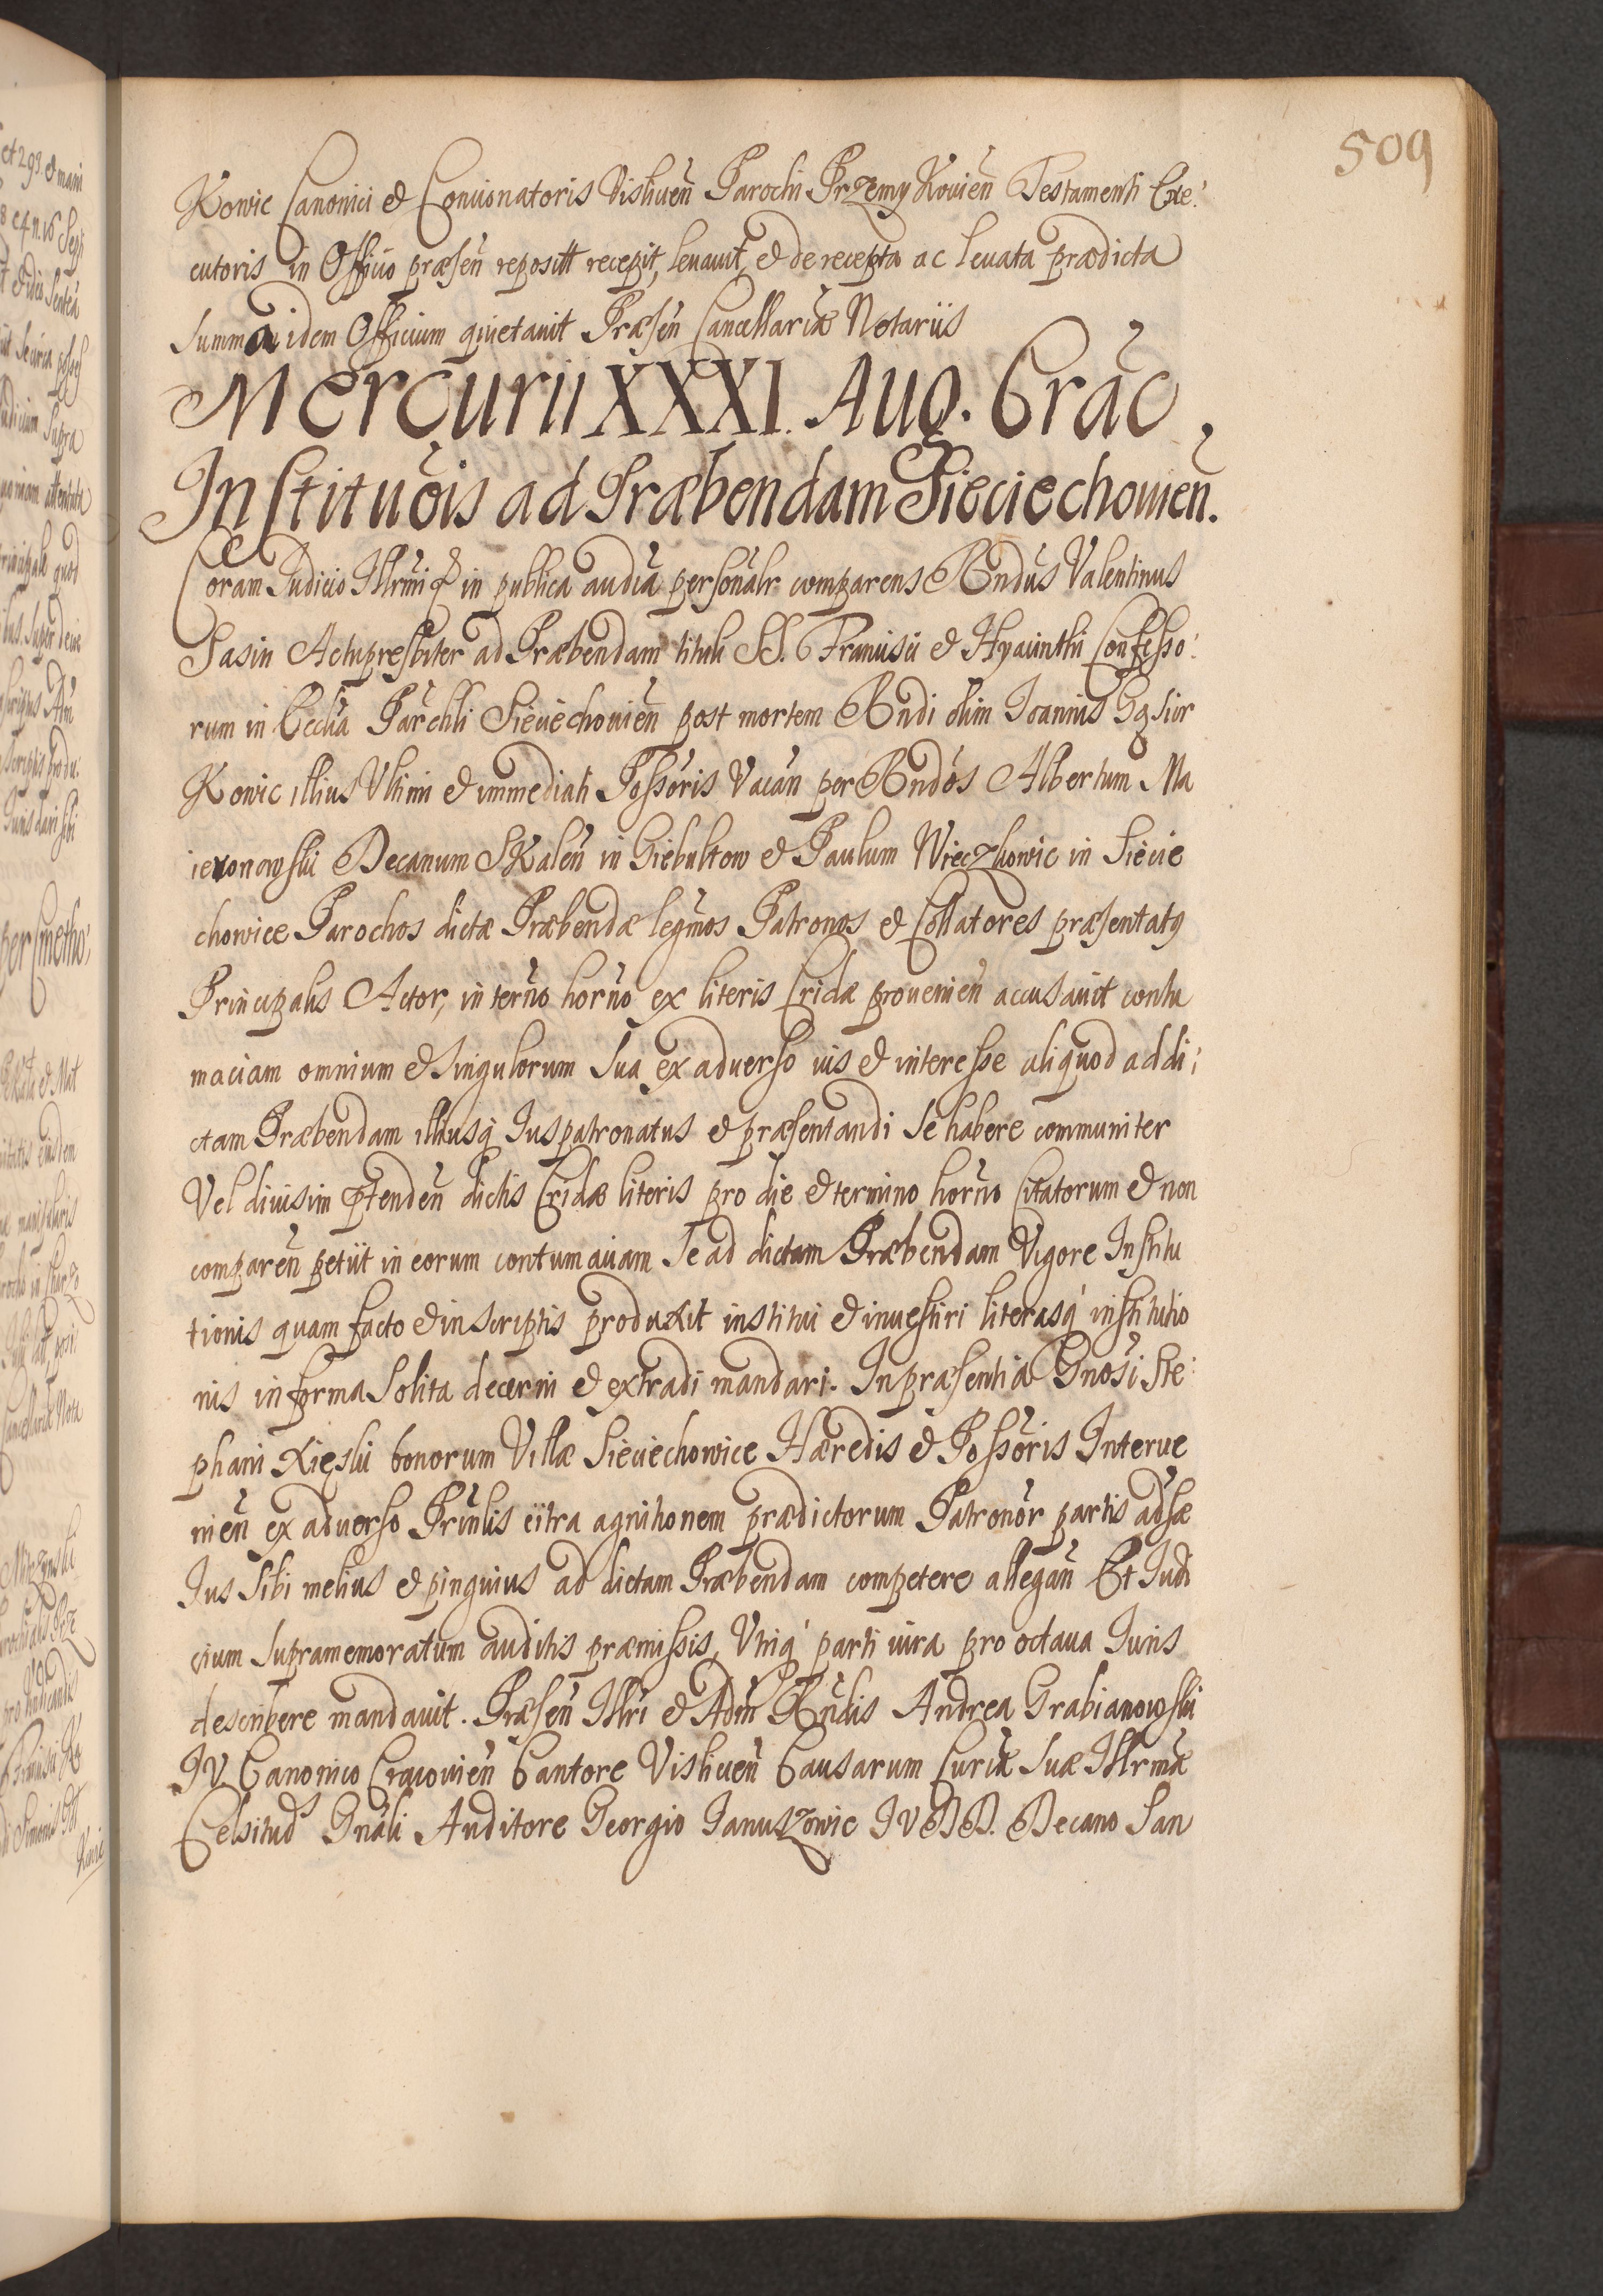 509
Kowic Canonici & Concionatoris Visliceñ Parochi Przemy Kovieñ Testamenti Exe:
cutoris in Officio præseñ reposiťť recepit, levavit, & de recepta ac levata prædicta
summa idem Officium quietavit Præseñ Cancellariæ Notariis
Mercurii XXXI. Aug. Crac.
Institučois ad Præbendam Sieciechovieñ.
Coram Judicio Illrmi in publica audia personalr comparens Rndus Valentinus
Sasin Actupresbiter ad Præbendam tituli SS. Francisci & Hyacinthi Confesso:
rum in Ecclia Parchli Sieciechovieñ post mortem Rndi olim Joannis
Kowic illius Ultimi & immediati Possoris Vacañ per Rndos Albertum Ma
ieronowski Decanum Skaleñ in Giebultow & Paulum Wieczkowic in Siecie
chowice Parochos dictæ Præbendæ legmos Patronos & Collatores præsentatq
Principalis Actor, in terño horño ex literis Cridæ provenieñ accusavit contu
maciam omnium & singulorum sua ex adverso ius & interesse aliquod ad di:
ctam Præbendam illiusq Juspatronatus & præsentandi se habere communiter
Vel divisim ptendeñ dictis Cridæ literis pro die & termino horño Citatorum & non
compareñ petiit in eorum contumaciam se ad dictam Præbendam Vigore Institu
tionis quam facto & in scriptis produxit institui & investiri literasq institutio
nis in forma solita decerni & extradi mandari. In præsentia Gnosi Ste:
phani bonorum Villæ Sieciechowice Hæredis & Possoris Interve
nieñ ex adverso Prinlis citra agnitionem prædictorum Patronor partis adsæ
Jus sibi melius & pinguius ad dictam Præbendam competere allegañ Et Judi
cium supramemoratum auditis præmissis, Utriq parti iura pro octava Juris
describere mandavit. Præseñ Illri & Adm Rndis Andrea Grabianowski
JV Canonico Cracovieñ Cantore Visliceñ Causarum Curiæ suæ Illrmæ
Celsitud Gnali Auditore Georgio Januszowic JVDD. Decano San